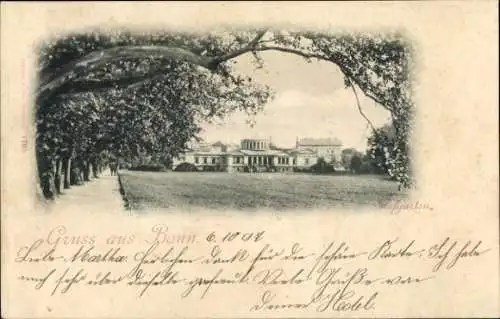 garten.
Gruss aus Bonn. 6. 10 97
Liebe Martha! Herzlichen Dank für die schöne Karte. Ich habe
mich sehr über dieselbe gefreut. Viele Grüsse von
deiner Hedel.